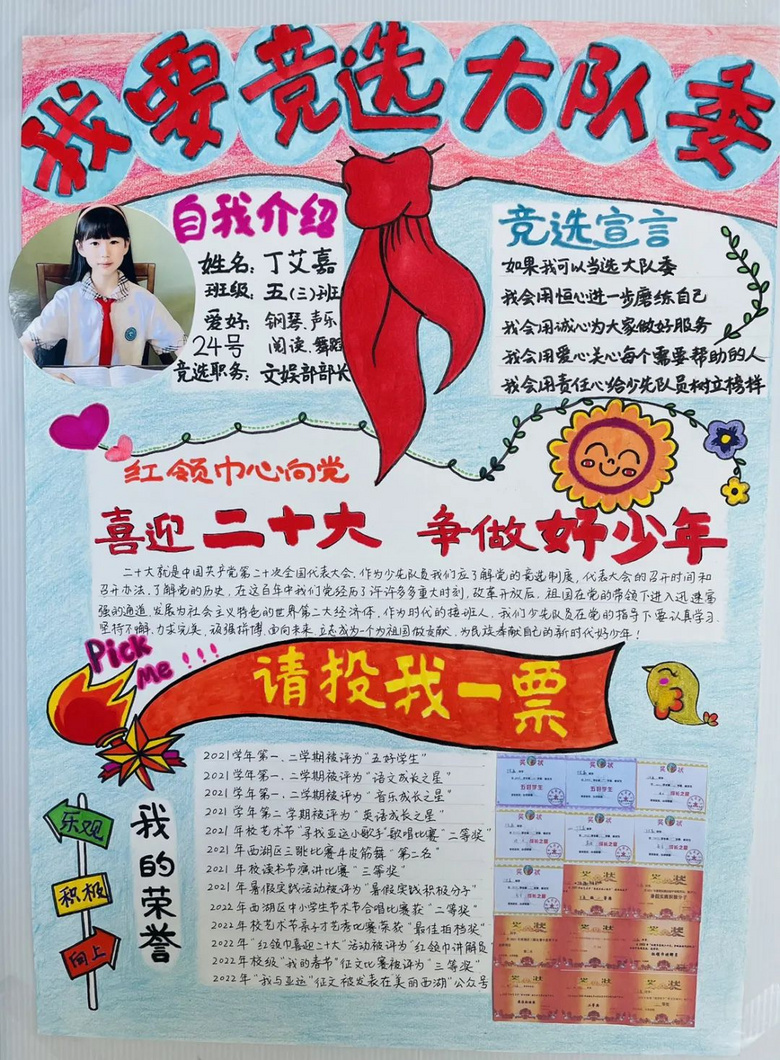 我要竞选大队委
自我介绍
姓名：丁艾嘉
班级：五（三）班
爱好：钢琴、声乐
24号 阅读、舞蹈
竞选职务：文娱部部长
竞选宣言
如果我可以当选大队委
我会用恒心进一步磨练自己
我会用诚心为大家做好服务
我会用爱心关心每个需要帮助的人
我会用责任心给少先队员树立榜样
红领巾心向党
喜迎二十大 争做好少年
二十大就是中国共产党第二十次全国代表大会，作为少先队员我们应了解党的竞选制度，代表大会的召开时间和
召开办法，了解党的历史，在这百年中我们党经历了许许多多重大时刻，改革开放后，祖国在党的带领下进入迅速富
强的通道，发展为社会主义特色的世界第二大经济体，作为时代的接班人，我们少先队员在党的指导下要认真学习，
坚持不懈，力求完美，顽强拼搏，面向未来，立志成为一个为祖国做贡献，为民族奉献自己的新时代好少年！
Pick
Me!!!
请投我一票
我的荣誉
乐观
积极
向上
2021学年第一、二学期被评为“五好学生”
2021学年第一、二学期被评为“语文成长之星”
2021学年第一、二学期被评为“音乐成长之星”
2021学年第二学期被评为“英语成长之星”
2021年校艺术节“寻找亚运小歌手”歌唱比赛“二等奖”
2021年西湖区三跳比赛牛皮筋舞“第二名”
2021年校读书节演讲比赛“三等奖”
2021年暑假实践活动被评为“暑假实践积极分子”
2022年西湖区中小学生艺术节合唱比赛获“二等奖”
2022年校艺术节亲子才艺秀比赛荣获“最佳拍档奖”
2022年“红领巾喜迎二十大”活动被评为“红领巾讲解员”
2022年校级“我的春节”征文比赛被评为“三等奖”
2022年“我与亚运”征文被发表在美丽西湖“公众号